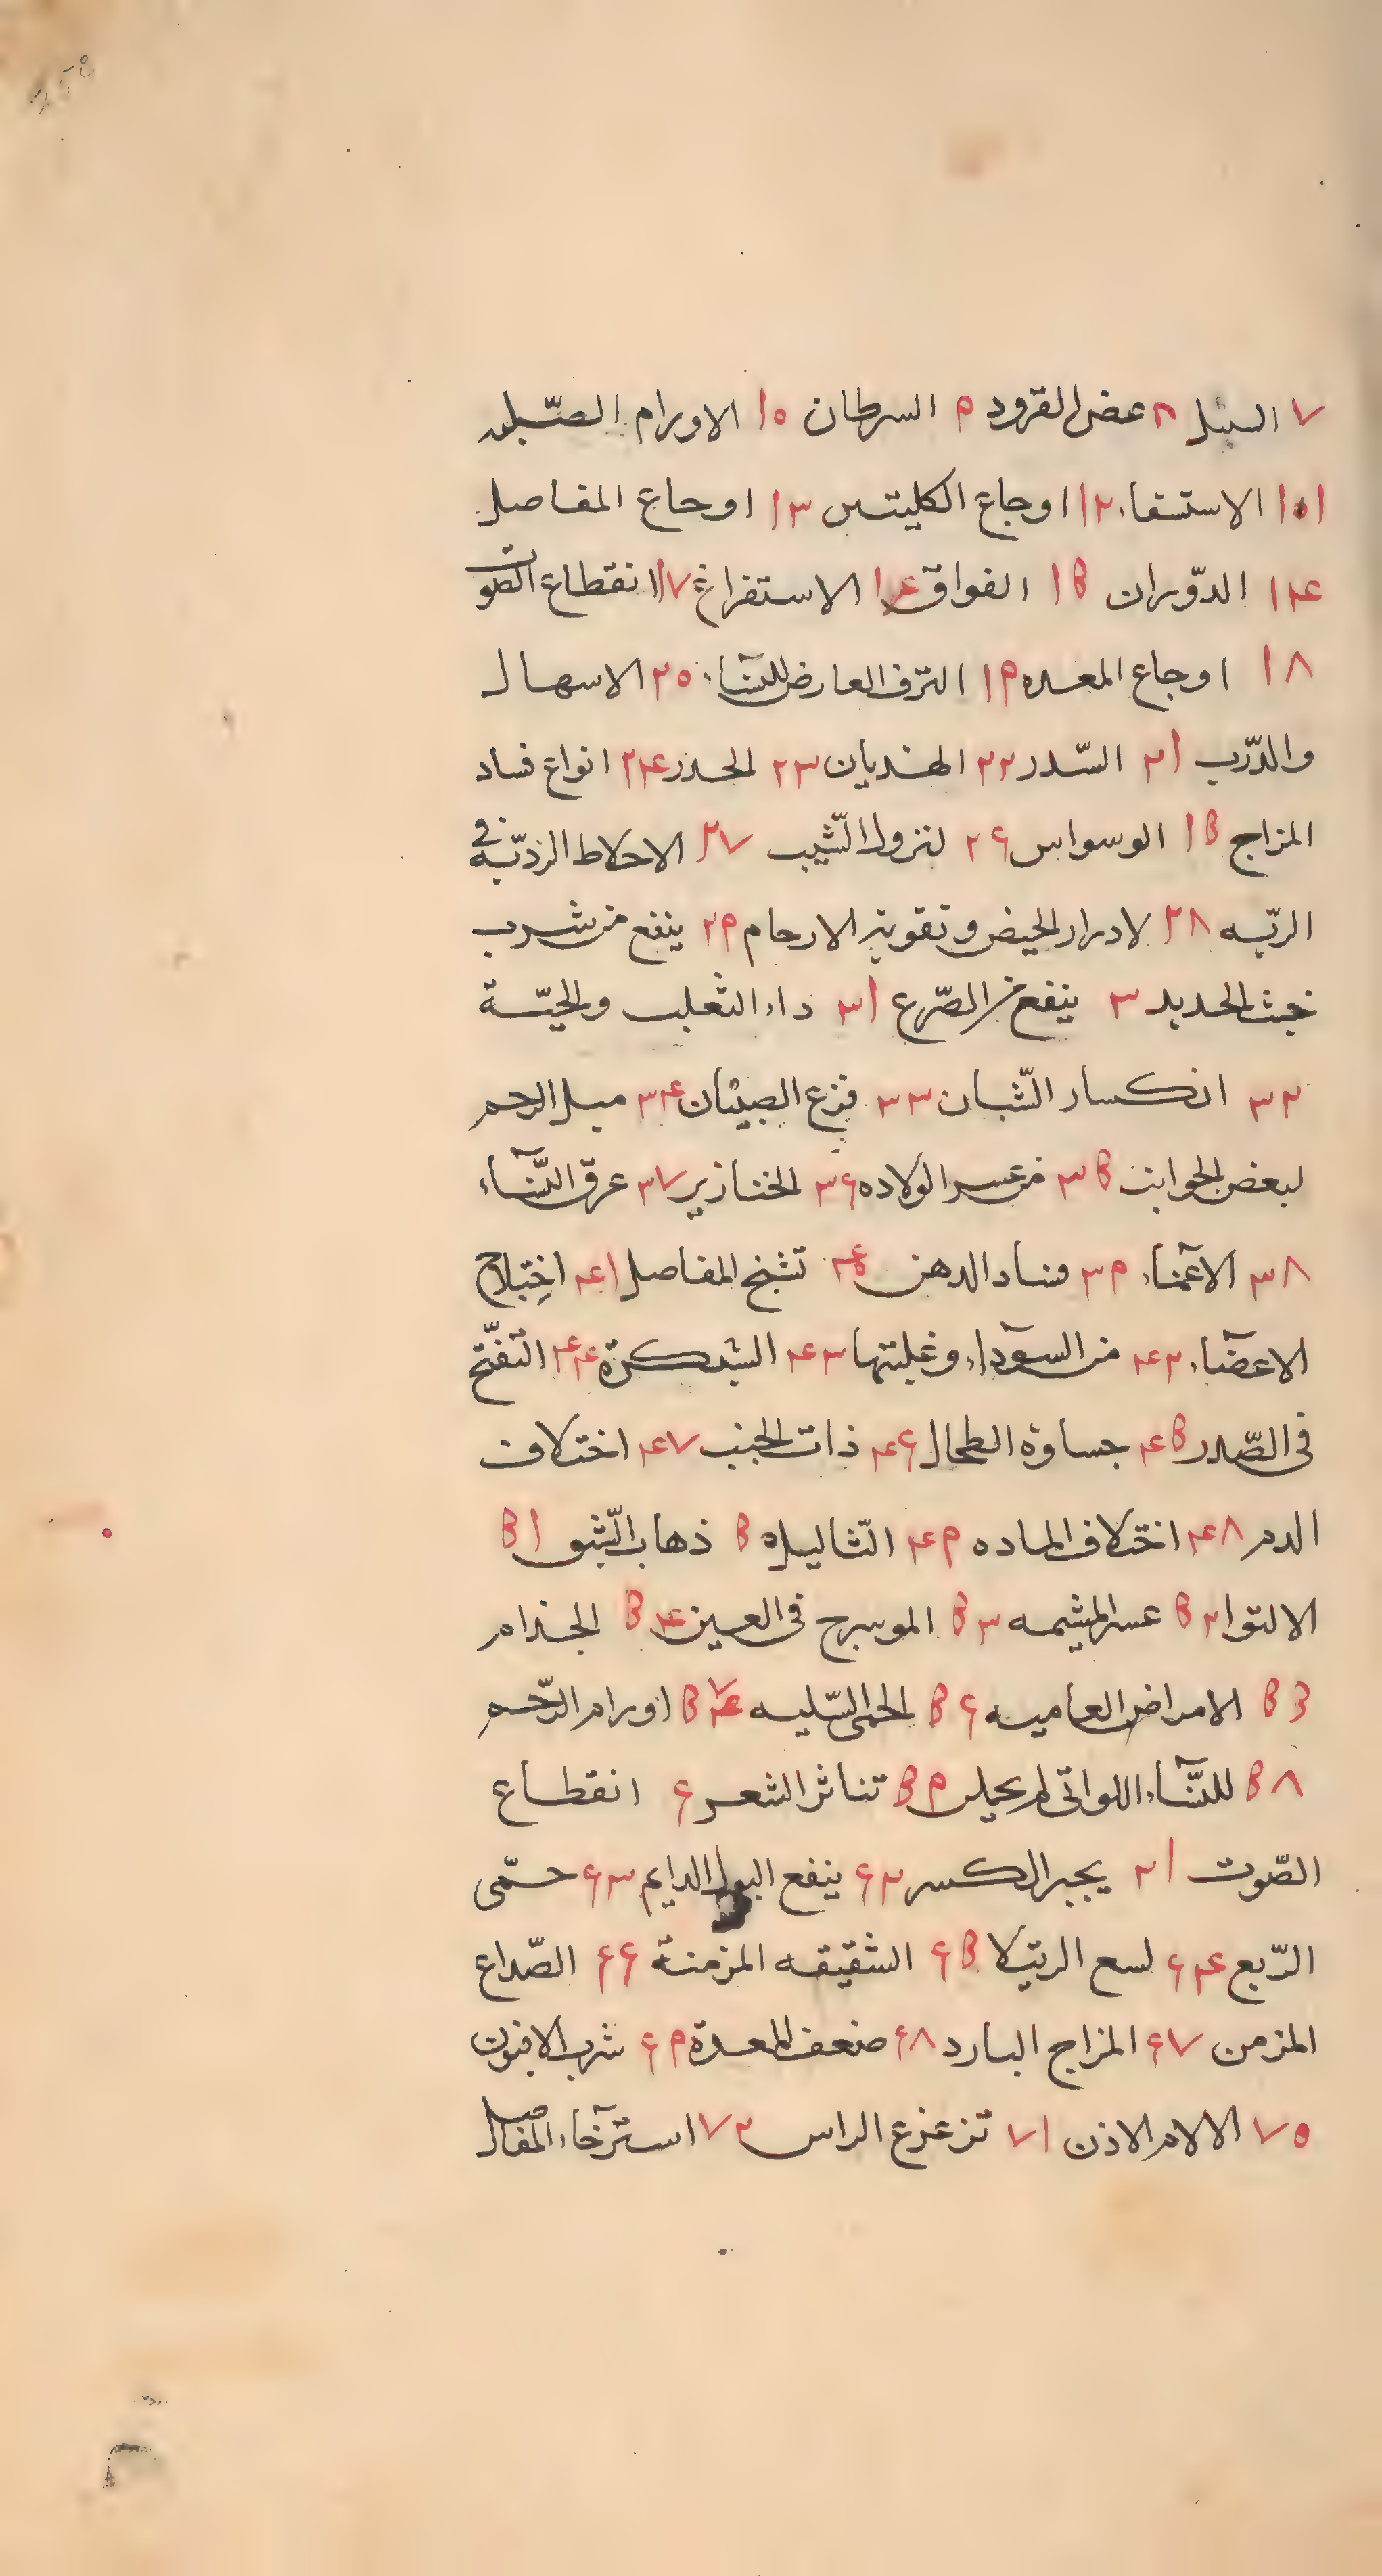 258
٧ السبل ٨ عض القرود ٩ السرطان ١٠ الاورام الصلبه
١٠١ الاستسقاء ١٢ اوجاع الكليتين ١٣ اوجاع المفاصل
١۴ الدّوران ١۵ الفواق ١۶ الاستفراغ ١٧ انقطاع الصوت
١٨ اوجاع المعده ١٩ النزف العارض للنسآء ٢٠ الاسهال
والذّرب ٢١ السّدر ٢٢ الهذيان ٢٣ الخدر ٢۴ انواع فساد
المزاج ١۵ الوسواس ٢۶ لنزول الشّيب ٢٧ الاخلاط الرديّه في
الريّه ٢٨ لادرار الحيض وتقوية الارحام ٢٩ ينفع من شرب
خبث الحديد ٣ ينفع من الصّرع ٣١ داء الثعلب والحيّة
٣٢ انكسار الشّبان ٣٣ فزع الصبيان ٣۴ ميل الرحم
لبعض الجوانب ٣۵ من عسر الولاده ٣۶ الخنازير ٣٧ عرق النّسآء
٣٨ الاغمآء ٣٩ فساد الدهن ۴٠ تشنج المفاصل ۴١ اختِلاج
الاعضآء ۴٢ من السوّدآء وغلبتها ۴٣ الشبكرة ۴۴ التفتّح
فى الصّدر ۴۵ جساوة الطحال ۴۶ ذات الجنب ۴٧ اختلاف
الدم ۴٨ اختلاف الماده ۴٩ الثّاليل ۵٠ ذهاب الشّبق ۵١
الالتوا ۵٢ عسر المشيمه ۵٣ الموسرج فى العين ۵۴ الجذام
۵۵ الامراض العاميه ۵۶ الحمى السّليه ۵٧ اورام الرّحم
۵٨ للنسّآء اللواتى لم يحبلن ۵٩ تناثر الشعر ۶ انقطاع
الصّوت ٢١ يجبر الكسر ۶٢ ينفع البول الدايم ۶٣ حمّى
الرّبع ۶۴ لسع الرتيلا ۶۵ الشقيقه المزمنة ۶۶ الصّداع
المزمن ۶٧ المزاج البارد ۶٨ ضعف المعدة ۶٩ شرب الافيون
٧٠ الالام الاذن ٧١ تزعزع الراس ٧٢ استرخآء المفاصل